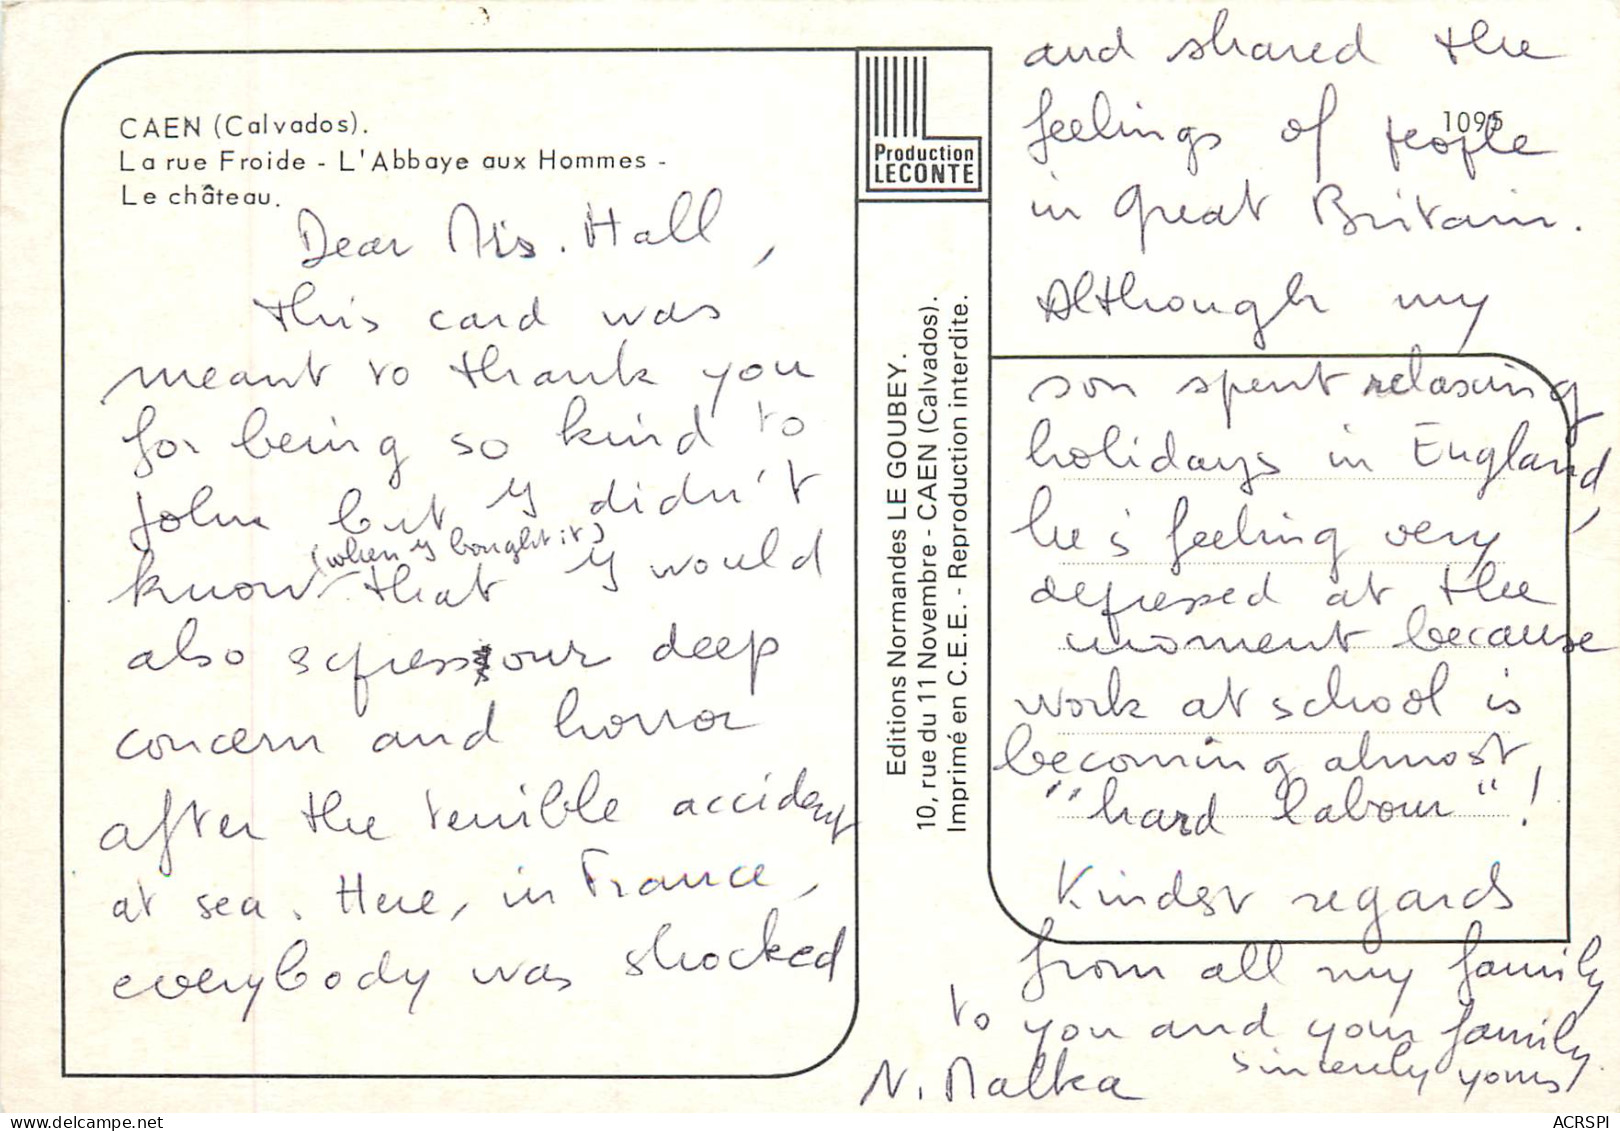 CAEN (Calvados).
La rue Froide - L'Abbaye aux Hommes -
Le château.
Dear Mrs. Hall,
this card was
meant to thank you
for being so kind to
John but I didn't
(when I bought it)
know that I would
also express our deep
concern and horror
after the terrible accident
at sea. Here, in France,
everybody was shocked
Production
LECONTE
Editions Normandes LE GOUBEY.
10, rue du 11 Novembre - CAEN (Calvados).
Imprimé en C.E.E. - Reproduction interdite.
1095
and shared the
feelings of people
in Great Britain.
Although my
son spent relaxing
holidays in England,
he's feeling very
depressed at the
moment because
work at school is
becoming almost
"hard labour"!
Kindest regards
from all my family
to you and your family.
sincerely yours
N. Malka
ACRSPI